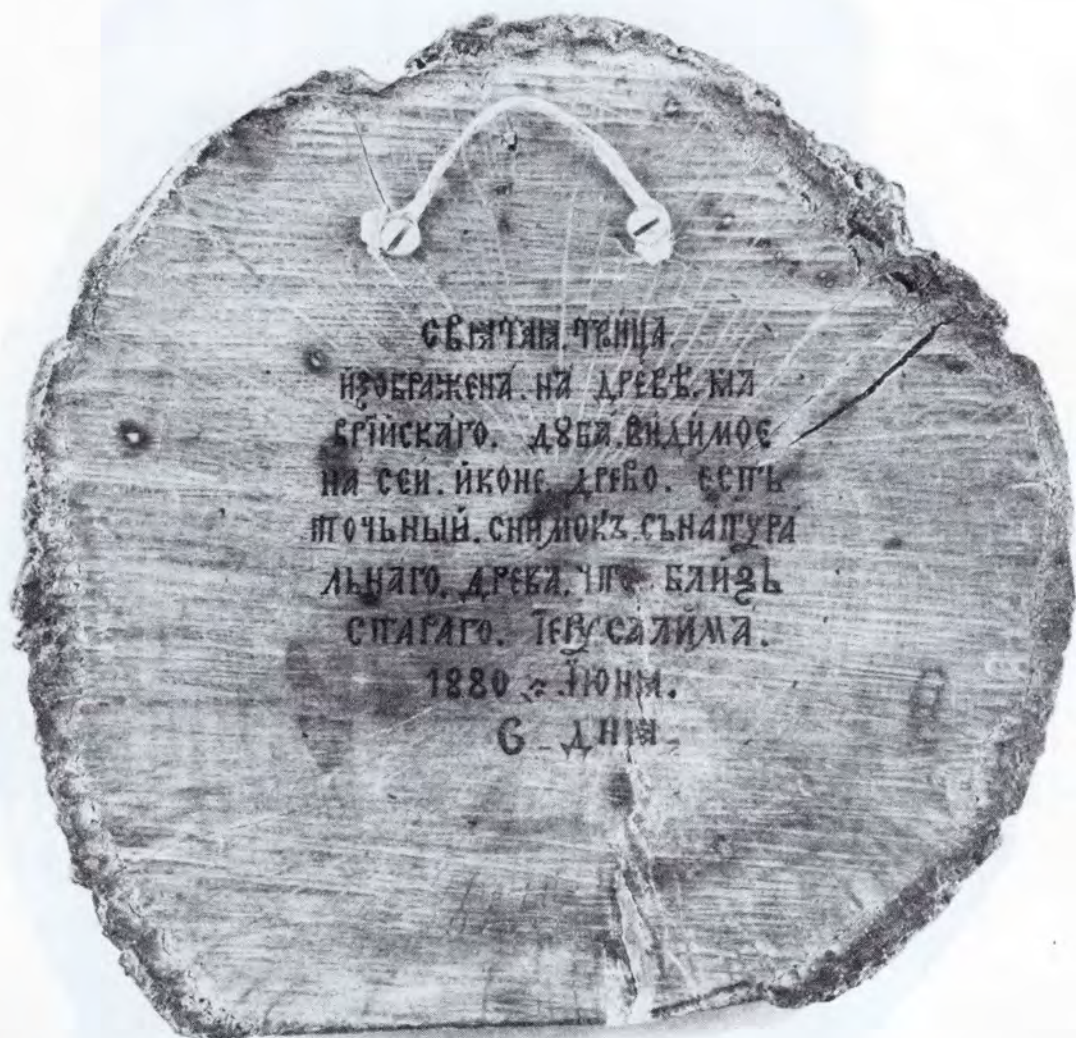 СВѦТАѦ. ТРО́ИЦА.
И҆ЗОБРАЖЕНА̀. НА ДРЕВѢ. МА
ВРІЙСКАГО. ДꙊБА. ВИДИМОЕ
НА СЕЙ. И҆КОНЕ. ДРЕВО. ЕСТЬ
ТОЧЬНЫЙ. СНИМОКЪ. СЪНАТУРА
ЛЬНАГО. ДРЕВА. ЧТО БЛИЗЬ
СТАРАГО. ІЕРУСАЛИМА.
1880 ІЮНѦ.
6 ДНѦ